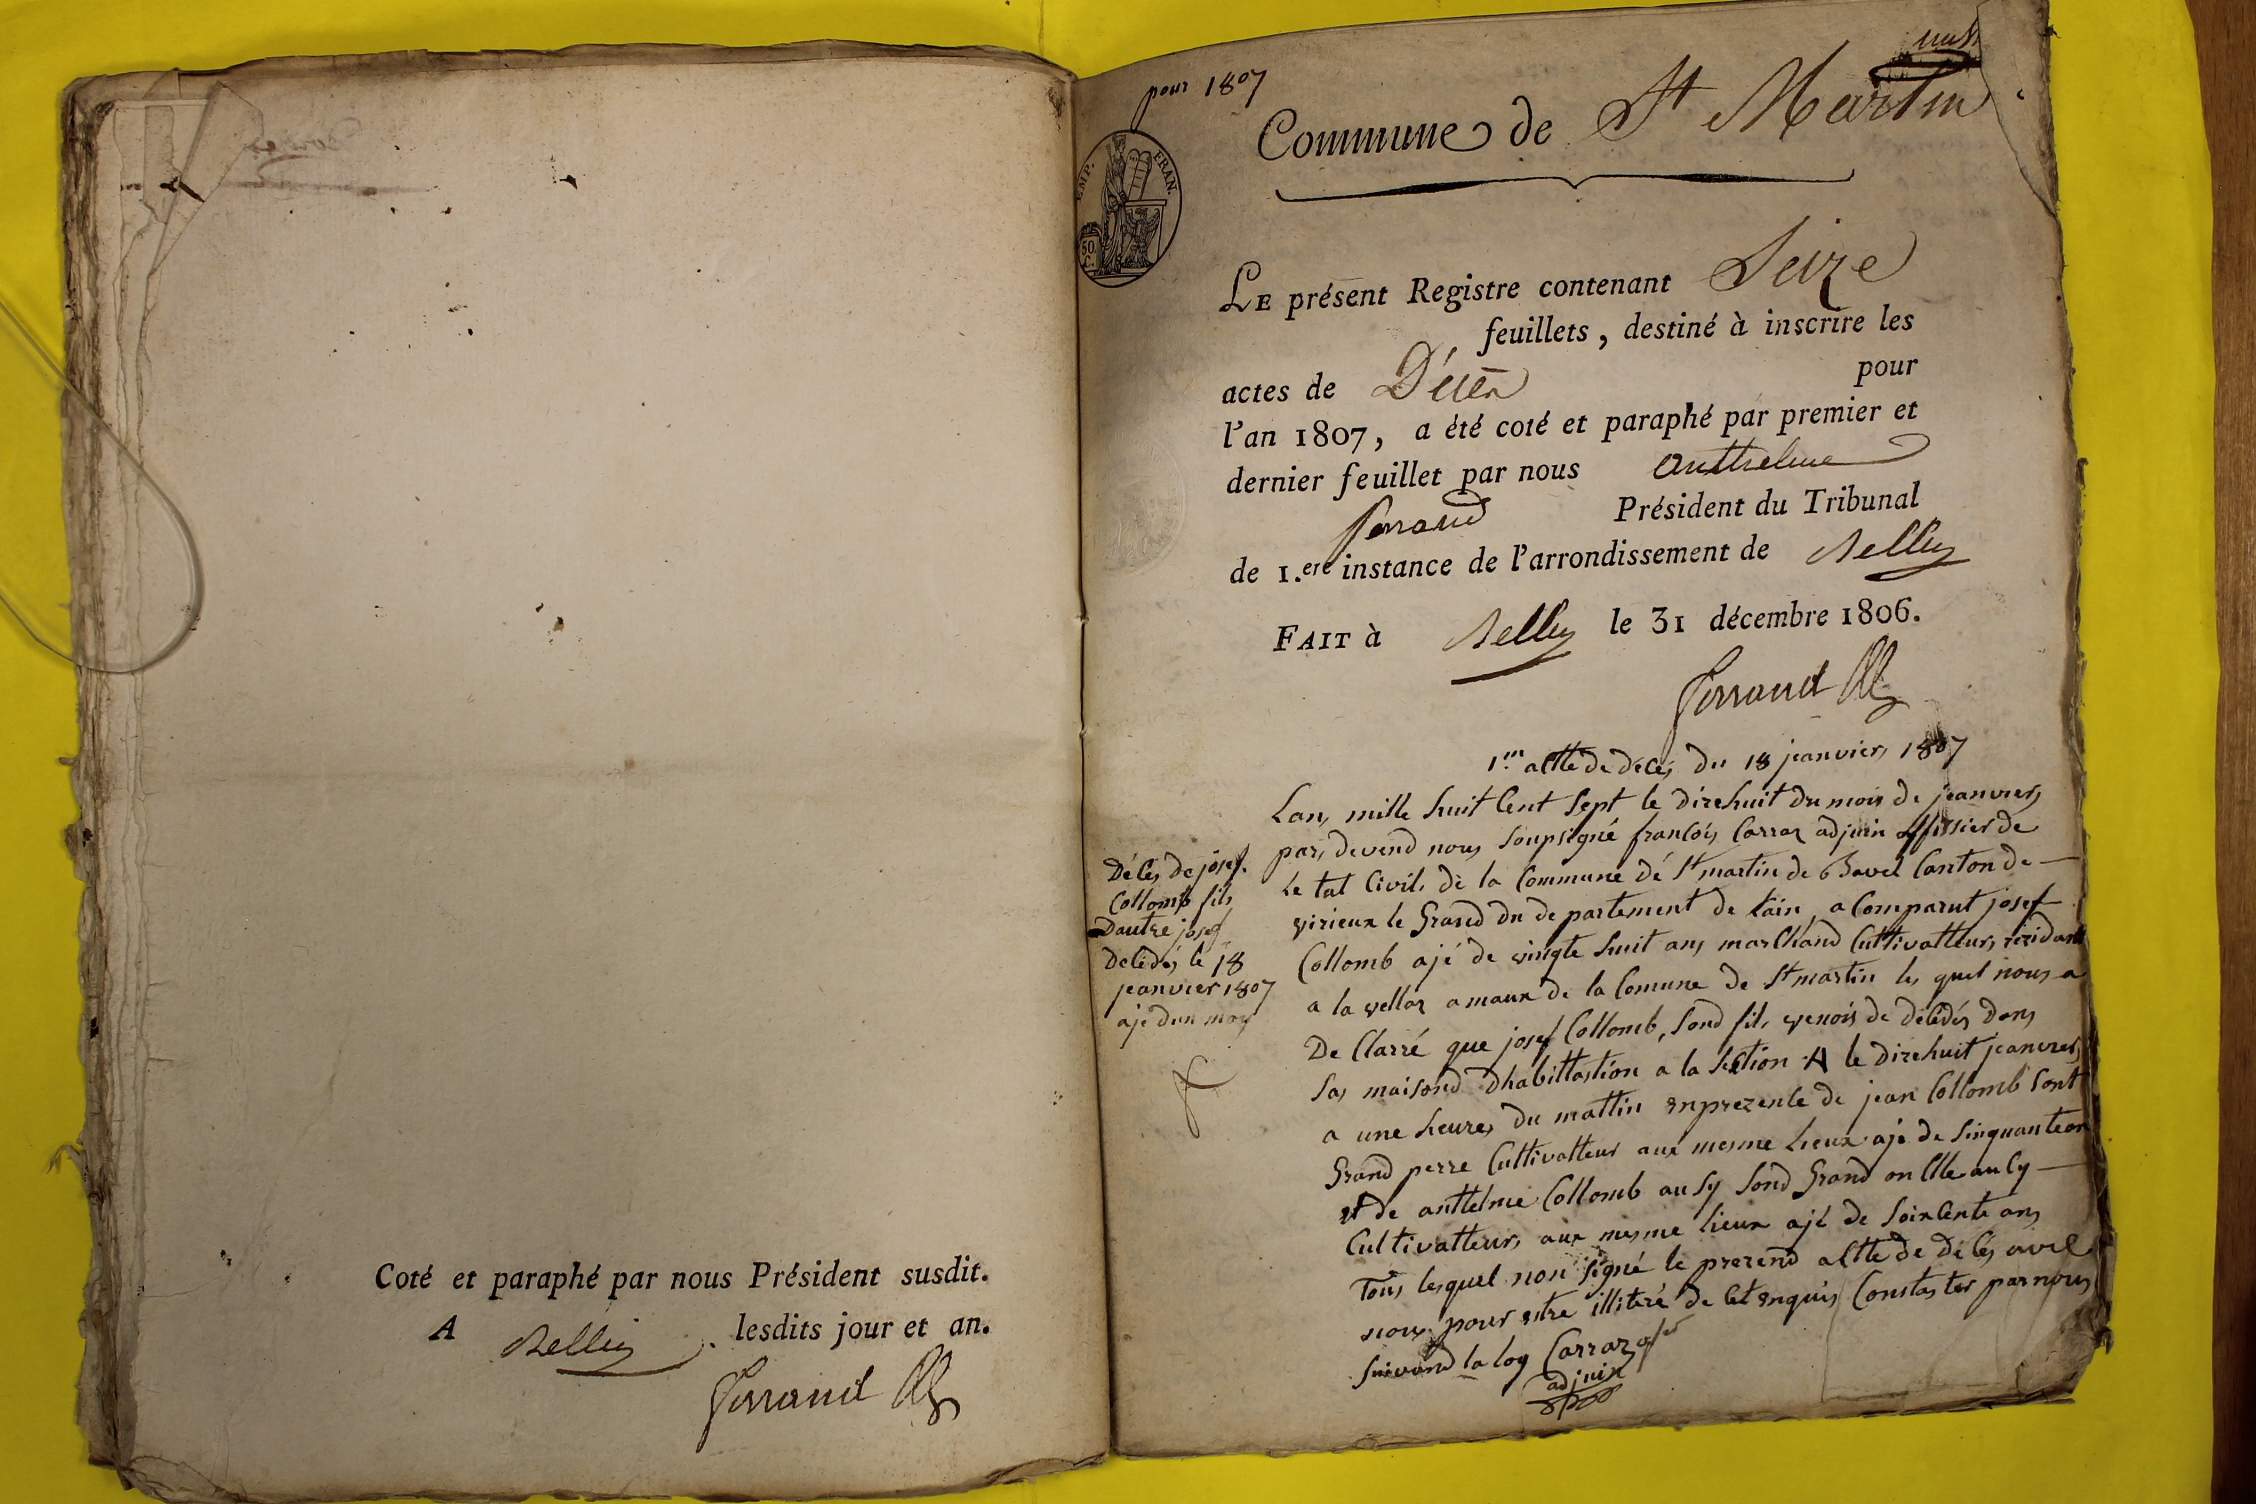 Coté et paraphé par nous Président susdit.
A Belley lesdits jour et an.
Ferrand
pour 1807
Commune de St Martin
EMP. FRAN.
50 C.
LE présent Registre contenant Seize
feuillets, destiné à inscrire les
actes de Décès pour
l'an 1807, a été coté et paraphé par premier et
dernier feuillet par nous anthelme
ferrand Président du Tribunal
de 1.ere instance de l'arrondissement de Belley
FAIT à Belley le 31 décembre 1806.
Ferrand
1.er altte de déces du 18 jeanvier 1807
Lan mille huit Cent Sept le dixehuit du mois de jeanvier
par devend nous soupsigné francois Carraz adjuin offissier de
Le tat Civil de la Commune dé St martin de Bavel Canton de
virieux le Grand du departement de lain a Comparut josef
Collomb ajé de vingte huit ans marChand Cultivatteur rezidant
a la vellaz amaux de la Comune de St martin les quel nous a
De Clarré que josef Collomb, sond fils venois de décédés dans
Sas maisond dhabittastion a la Section A le dixehuit jeanvier
a une heures du mattin enprezente de jean Collomb sont
Grand perre Cultivatteur aux mesme Lieux ajé de Sinquante an
et de anttelme Collomb ausy sond Grand onCle auCy
Cultivatteur aux mesme lieux ajé de Soixcente ans
Tous lesquel non signé le prezend altte de décés avel
nous pour estre illiteré de Cet enquis Constaster par nous
suivand la loy Carraz
adjuin
Décés de josef
Collomb fils
Dautre josef
décédés le 18
jeanvier 1807
ajé dun moy